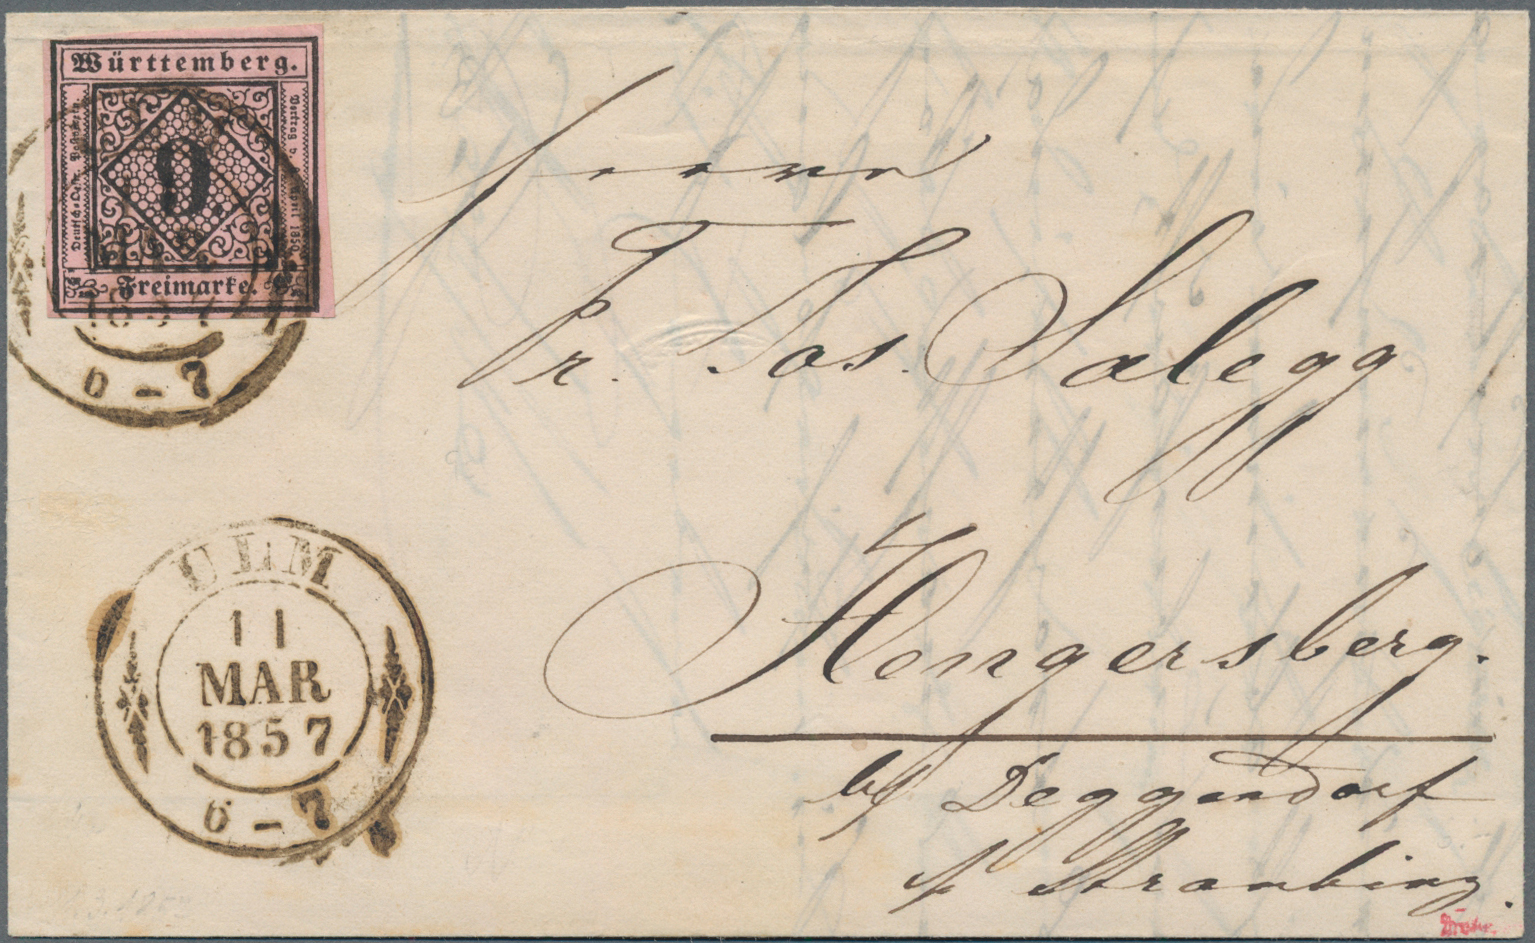 Württemberg.
Deutsch-Oestr. Postverein.
9
Vertrag v. 6. April 1850.
Freimarke.
1857
6 – 7
Herrn
Pr. Jos. Salegg
Hengersberg.
bei Deggendorf
p/ Straubing.
ULM
11
MAR
1857
6 – 7